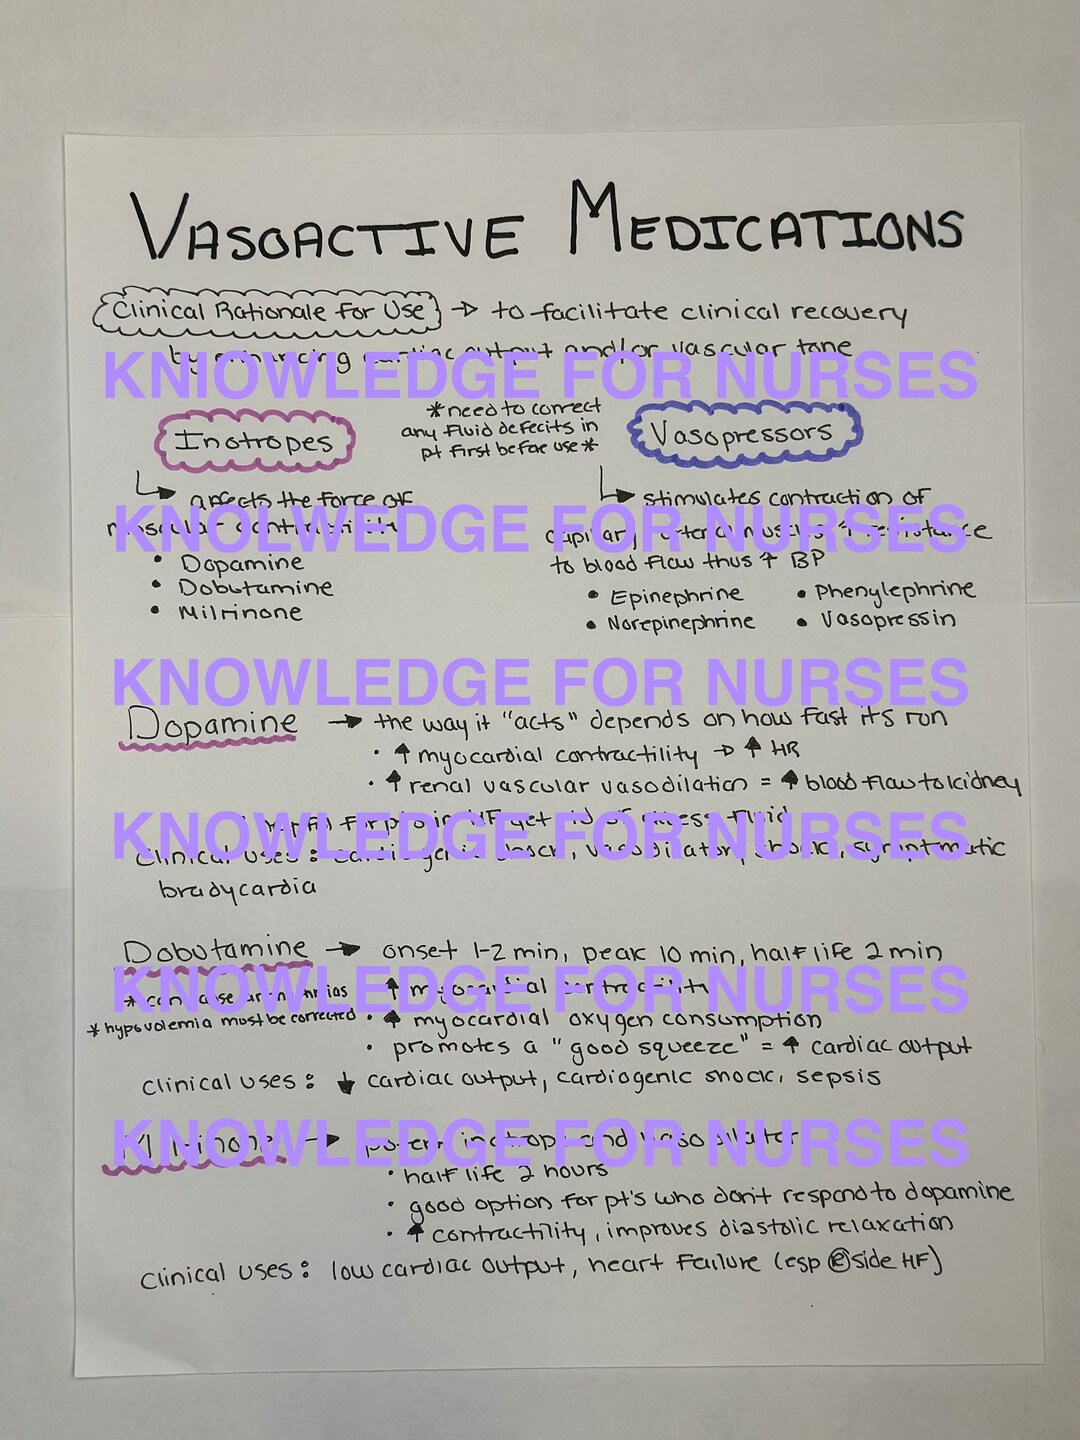 VASOACTIVE MEDICATIONS
Clinical Rationale for Use → to facilitate clinical recovery
by enhancing cardiac output and/or vascular tone
KNIOWLEDGE FOR NURSES
*need to correct
any fluid defecits in
pt first before use*
Inotropes
Vasopressors
↳ affects the force of
muscular contractility
• Dopamine
• Dobutamine
• Milrinone
↳ stimulates contraction of
capillary + arterial muscles ↑ resistance
to blood flow thus ↑ BP
• Epinephrine • Phenylephrine
• Norepinephrine • Vasopressin
KNOLWEDGE FOR NURSES
KNOWLEDGE FOR NURSES
Dopamine → the way it "acts" depends on how fast its run
• ↑ myocardial contractility → ↑ HR
• ↑ renal vascular vasodilation = ↑ blood flow to kidney
helpful for pts in HF get rid of excess fluid
KNOWLEDGE FOR NURSES
Clinical uses: cardiogenic shock, vasodilator, shock, symptmatic
bradycardia
Dobutamine → onset 1-2 min, peak 10 min, half life 2 min
KNOWLEDGE FOR NURSES
* can cause arrhythmias • ↑ myocardial contractility
* hypovolemia must be corrected • ↑ myocardial oxygen consumption
• promotes a "good squeeze" = ↑ cardiac output
Clinical uses: ↓ cardiac output, cardiogenic shock, sepsis
KNOWLEDGE FOR NURSES
Milrinone → potent inotrope and vasodilator
• half life 2 hours
• good option for pt's who don't respond to dopamine
• ↑ contractility, improves diastolic relaxation
Clinical uses: low cardiac output, heart failure (esp side HF)